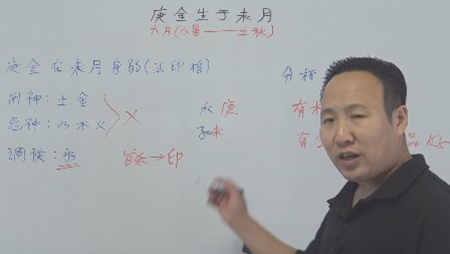 庚金生于未月
六月(小暑——立秋)
庚金在未月身弱(正印格)
用神:土金
忌神:水木火
×
调候:水
食→印
水庚
子未
分析
有水
有
品好